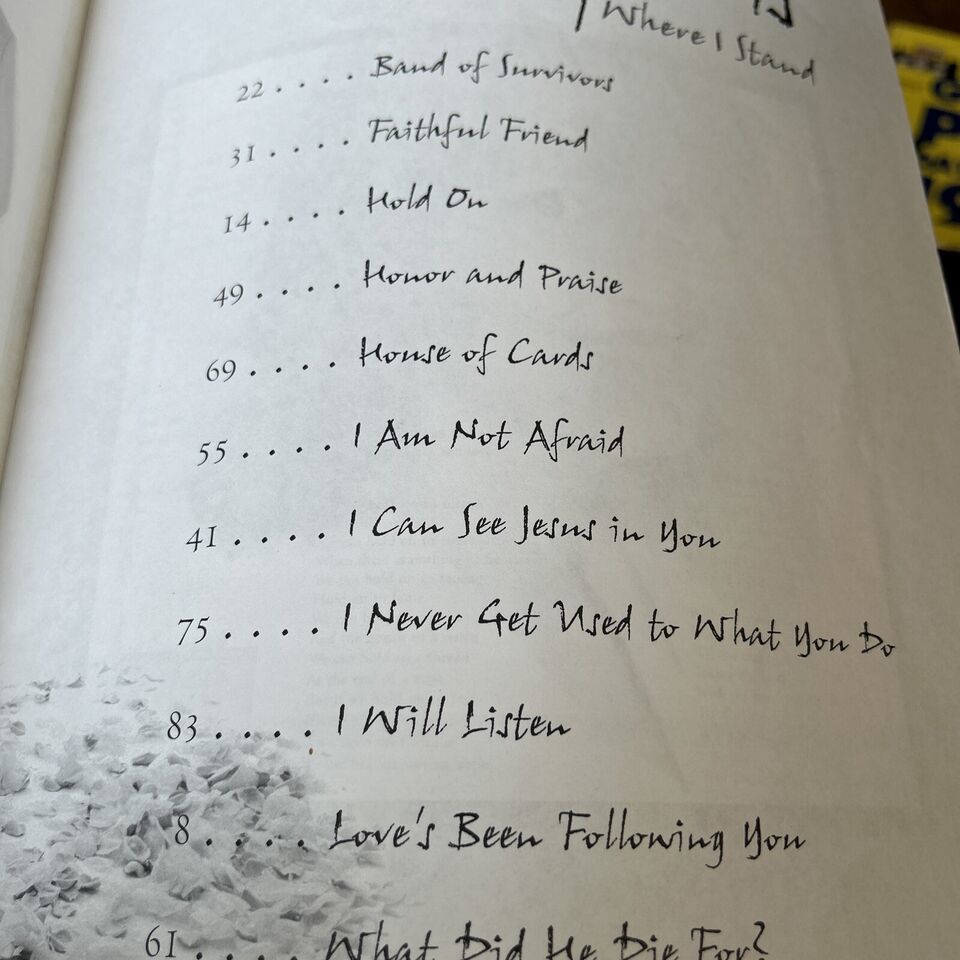 Where I Stand
22 . . . . Band of Survivors
31 . . . . Faithful Friend
14 . . . . Hold On
49 . . . . Honor and Praise
69 . . . . House of Cards
55 . . . . I Am Not Afraid
41 . . . . I Can See Jesus in You
75 . . . . I Never Get Used to What You Do
83 . . . . I Will Listen
8 . . . . Love's Been Following You
61 . . . . What Did He Die For?